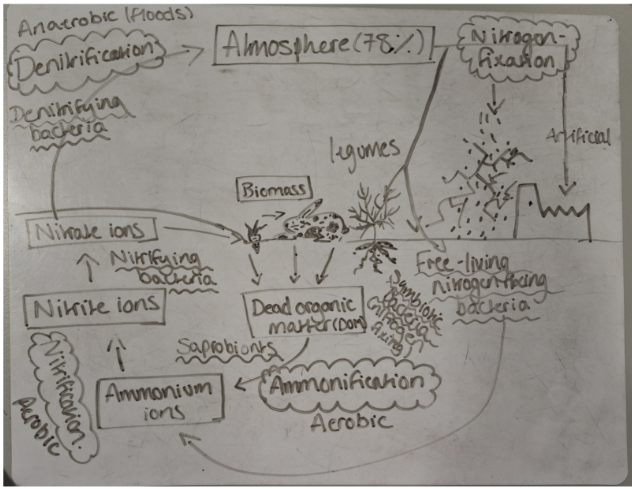 Anaerobic (floods)
Denitrification
Atmosphere (78%)
Nitrogen-
fixation
Denitrifying
bacteria
Artificial
legumes
Biomass
Nitrate ions
Nitrifying
bacteria
Free-living
nitrogen-fixing
bacteria
Symbiotic
bacteria
(nitrogen
fixing)
Nitrite ions
Dead organic
matter (DOM)
Saprobionts
Nitrification
Aerobic
Ammonium
ions
Ammonification
Aerobic